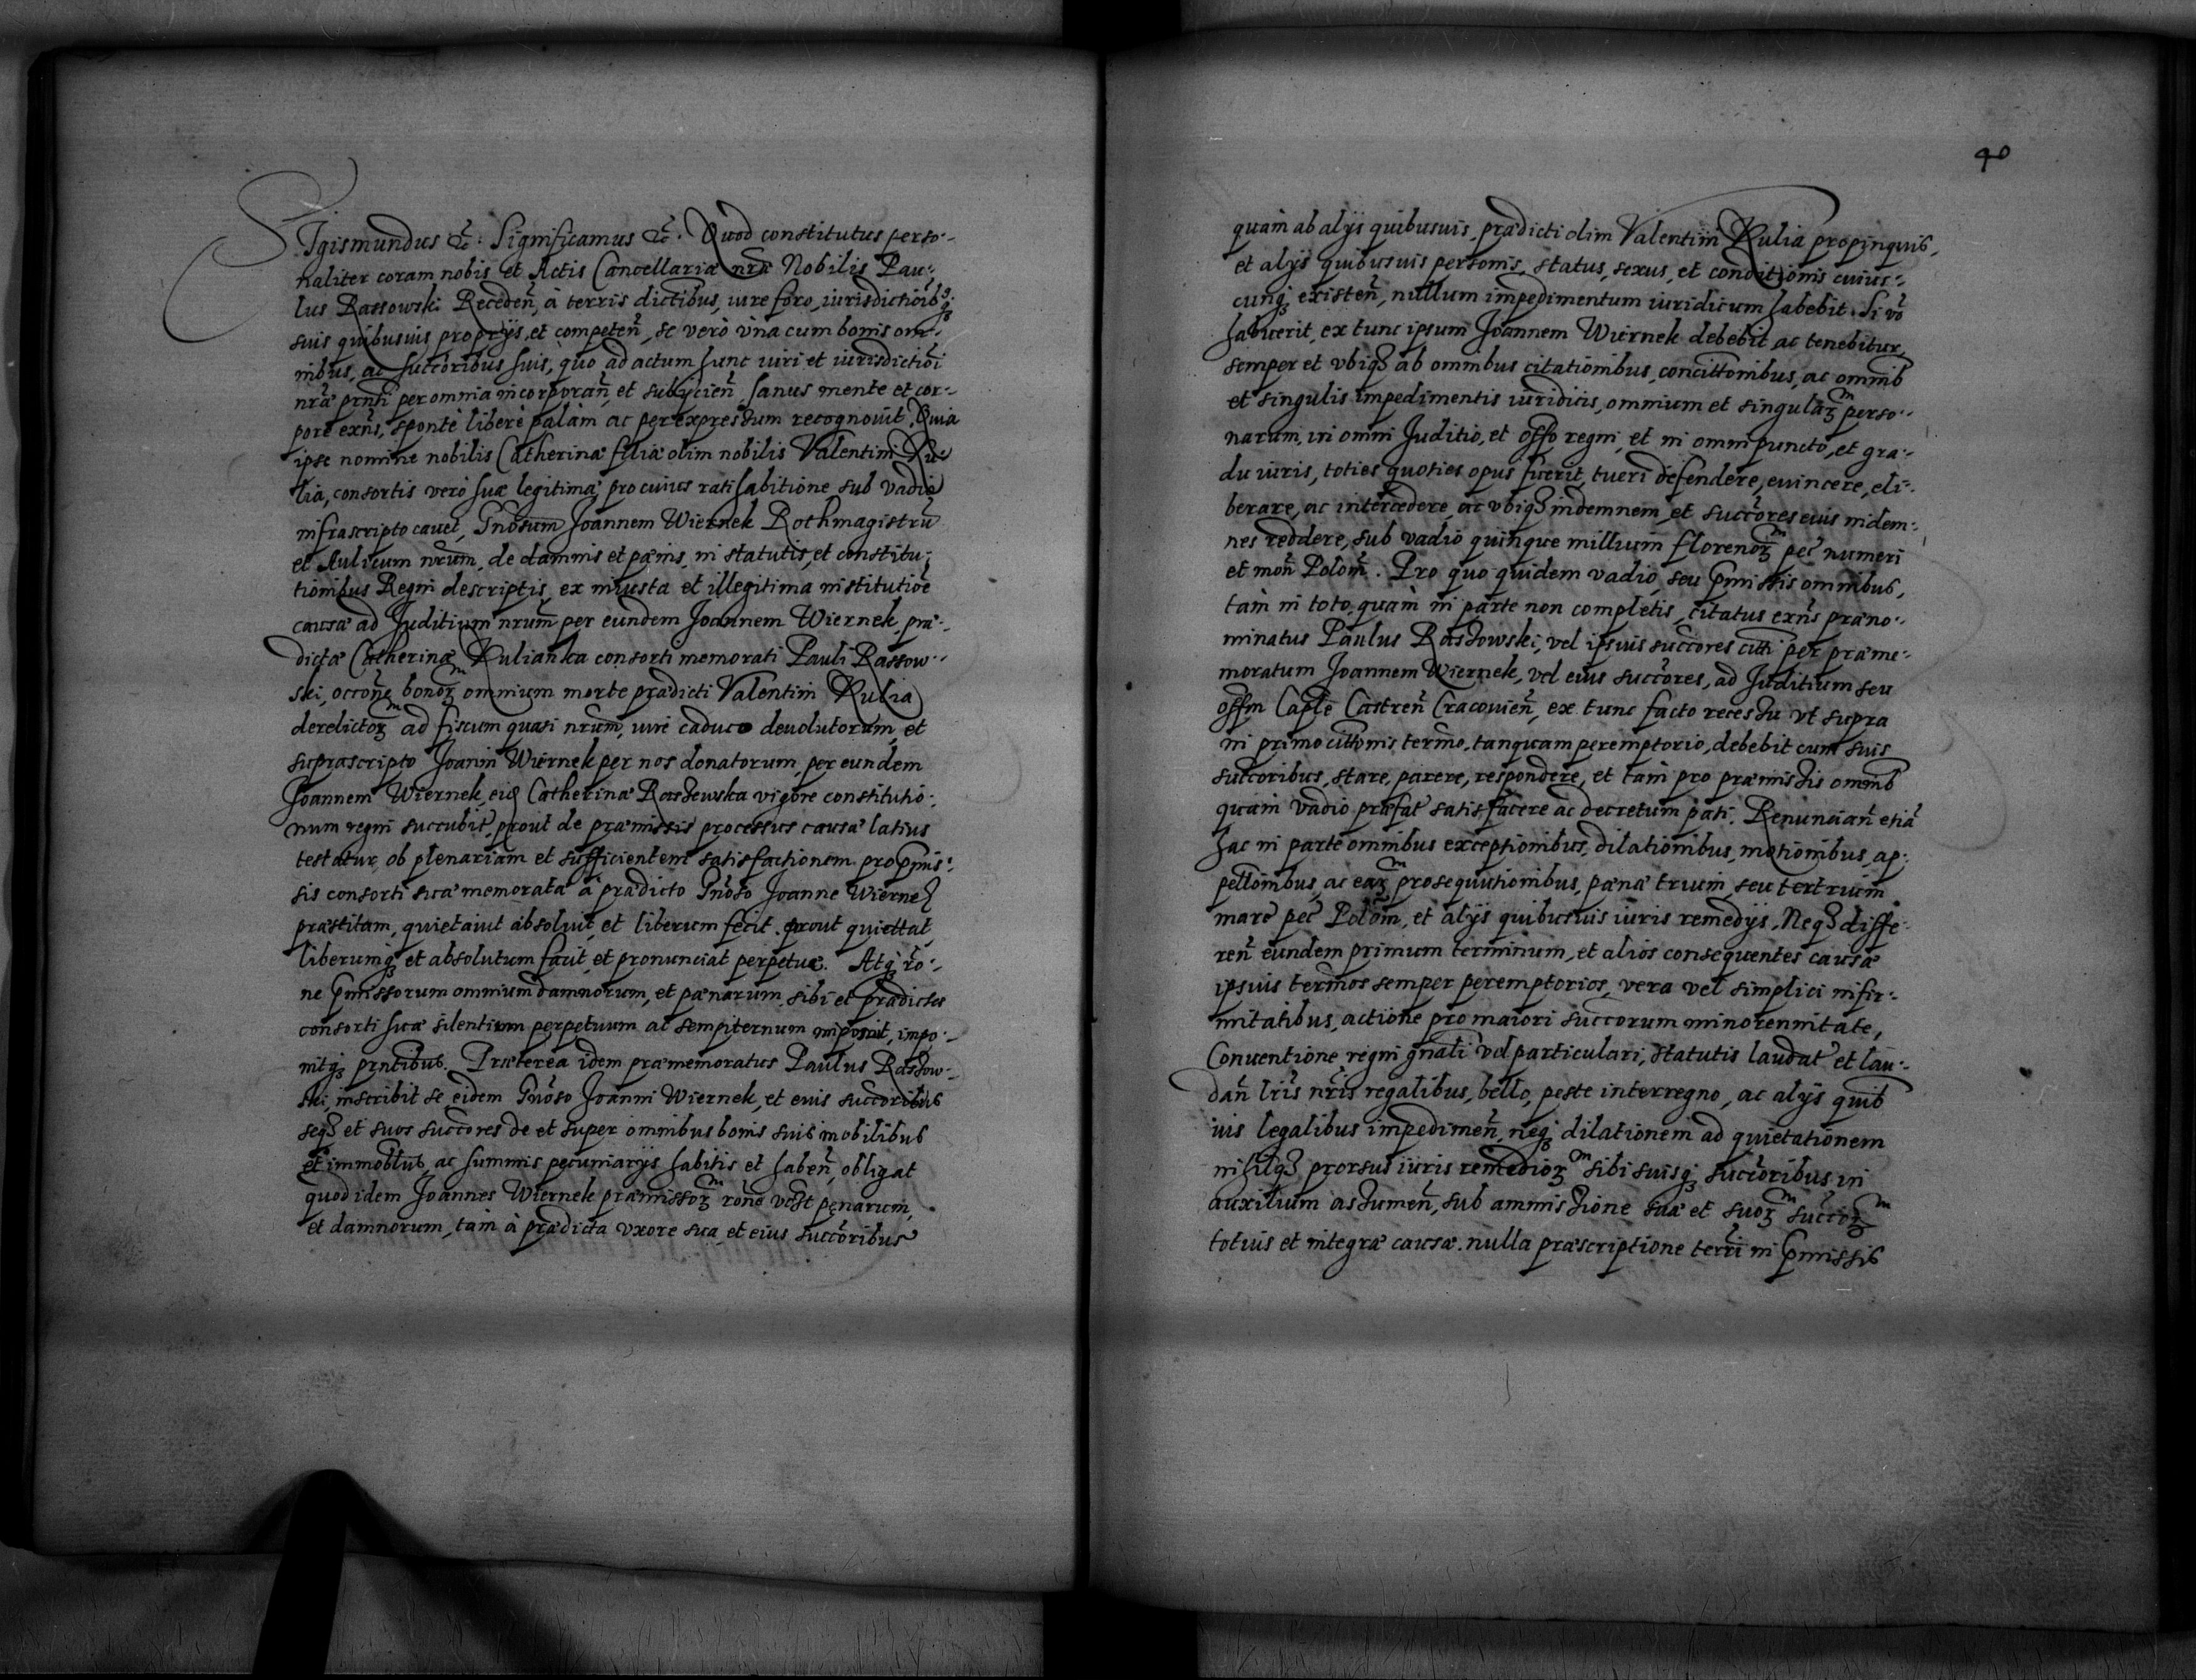 Sigismundus etc. Significamus etc. Quod constitutus perso-
naliter coram nobis et Actis Cancellariæ nræ Nobilis Pau-
lus Rassowski Receden̄, à terris dictibus, iure foro, iurisdictioibꝰ
suis quibusuis proprijs, et competen̄, se verò vna cum bonis om-
nibus, ac succoribus suis, quo ad actum hunc iuri et iurisdictioi
nræ prnti per omnia incorporan̄, et subijcien̄, sanus mente et cor-
pore exn̄s, spontè liberè palàm ac per expressum recognouit, Quia
ipse nomine nobilis Catherinæ filiæ olim nobilis Valentini Ru-
lia, consortis verò suæ legitimæ, pro cuius ratihabitione sub vadio
infrascripto cauet, Gnosum Joannem Wiernek Rothmagistrū
et Aulicum nrum, de damnis et pænis, in statutis, et constitu-
tionibus Regni descriptis, ex iniusta et illegitima institutiōe
causæ ad Juditium nrum per eundem Joannem Wiernek, præ-
dictæ Catherinæ Rulianka consorti memorati Pauli Rassow-
ski, occōne bonoꝝ omnium morte prædicti Valentini Rulia
derelictoꝝ ad fiscum quasi nrum, iure caduco deuolutorum, et
suprascripto Joanni Wiernek per nos donatorum, per eundem
Joannem Wiernek, eidꝫ Catherinæ Rassewska vigore constitutio-
num regni succubit, prout de præmissis processus causæ latius
testatur, ob plenariam et sufficientem satisfactionem pro pmis-
sis consorti suæ memoratæ à prædicto Gnoso Joanne Wiernek
præstitam, quietauit absoluit, et liberum fecit. prout quiettat,
liberumqꝫ et absolutum facit, et pronunciat perpetuæ. Atqꝫ rō-
ne pmissorum omnium damnorum, et pænarum, sibi et prædictæ
consorti suæ silentium perpetuum ac sempiternum imposuit, impo-
nitqꝫ prntibus. Præterea idem præmemoratus Paulus Rassow-
ski, inscribit se eidem Gnoso Joanni Wiernek, et eius succoribus
seqꝫ et suos succores de et super omnibus bonis suis mobilibus
et immoblib, ac summis pecuniarijs habitis et haben̄, obligat
quod idem Joannes Wiernek præmissoꝝ rōne penarum,
et damnorum, tam à prædicta vxore sua, et eius succoribus
40
quàm ab alijs quibusuis, prædicti olim Valentini Rulia propinquis,
et alijs quibusuis personis, status, sexus, et conditionis cuius-
cunqꝫ existen̄, nullum impedimentum iuridicum habebit. Si vō
habuerit, ex tunc ipsum Joannem Wiernek debebit ac tenebitur,
semper et vbiqꝫ ab omnibus citationibus, concittonibus, ac omnib
et singulis impedimentis iuridicis, omnium et singulaꝝ perso-
narum, in omni Juditio, et offo regni, et in omni puncto, et gra-
du iuris, toties quoties opus fuerit, tueri defendere, euincere, eli-
berare, ac intercedere, ac vbiqꝫ indemnem, et succores eius indem-
nes reddere, sub vadio quinque millium florenoꝝ pec̄ numeri
et mon̄ Polon̄. Pro quo quidem vadio, seu pmissis omnibus,
tàm in toto, quàm in parte non completis, citatus exn̄s præno-
minatus Paulus Rassowski, vel ipsius succores citti per præme-
moratum Joannem Wiernek, vel eius succores, ad Juditium seu
offm Caple Castren̄ Cracouien̄, ex tunc facto recessu vt supra
in primo cittonis, termo, tanquam peremptorio, debebit cum suis
succoribus, stare, parere, respondere, et tàm pro præmissis omnib
quàm vadio præfat satisfacere ac decretum pati. Renuncian̄ etiā
hac in parte omnibus exceptionibus, dilationibus, motionibus, ap-
pellonibus, ac eaꝝ prosequutionibus, pæna trium, seu tertrium
marc̄ pec̄ Polon̄, et alijs quibusuis iuris remedijs. Neqꝫ diffe-
ren̄ eundem primum terminum, et alios consequentes causæ
ipsius termos semper peremptorios, vera vel simplici infir-
mitatibus, actione pro maiori succorum minorennitate,
Conuentione regni gnali vel particulari, statutis laudat et lau-
dan̄ lris nris regalibus, bello, peste interregno, ac alijs quib
iuis legalibus impedimen̄, neqꝫ dilationem ad quietationem
nihilqꝫ prorsus iuris remedioꝝ sibi suisqꝫ succoribus in
auxilium assumen̄, sub ammissione suæ et suoꝝ succoꝝ
totius et integræ causæ. nulla præscriptione terri in pmissis